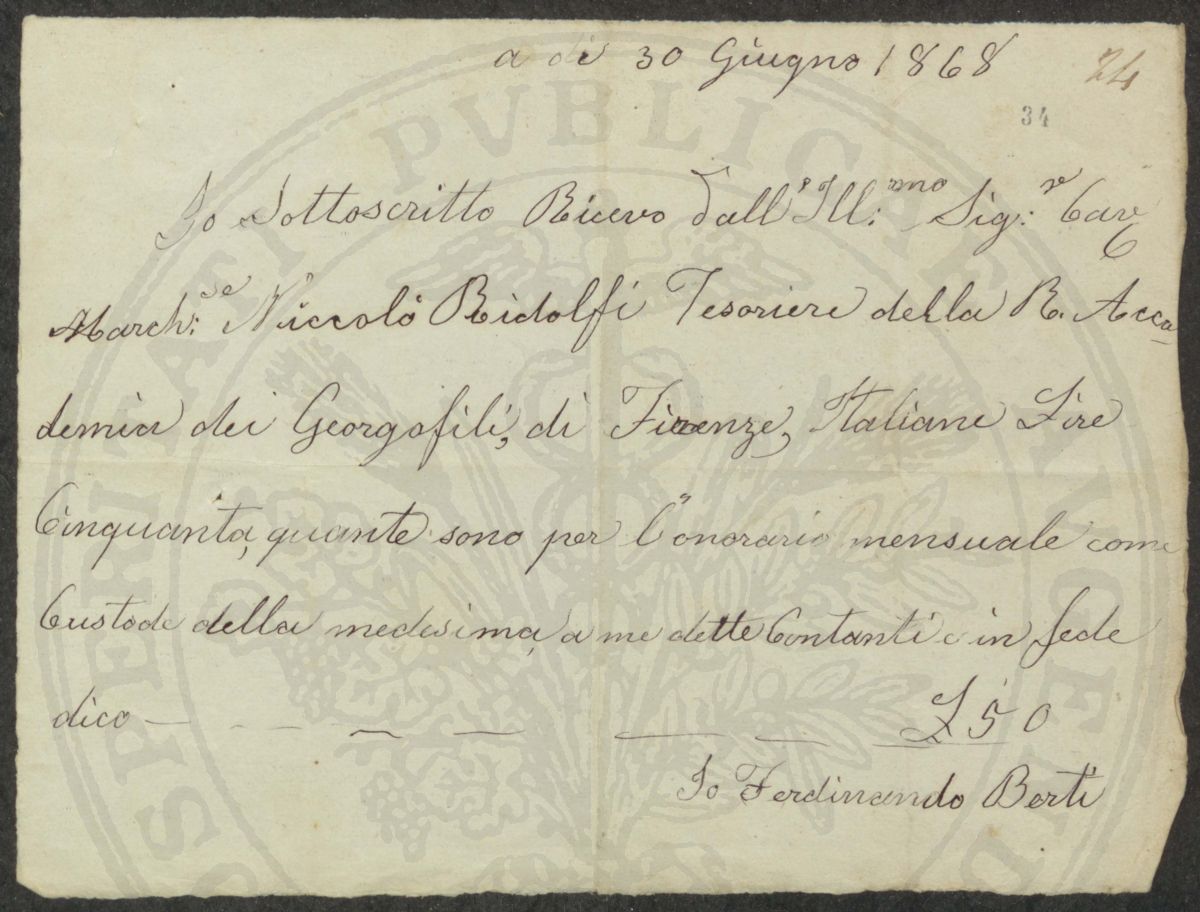 a dì 30 Giugno 1868
24
34
Io Sottoscritto Ricevo dall'Ill:mo Sig:r Cav
March:se Niccolò Ridolfi Tesoriere della R. Acca
demia dei Georgofili, di Firenze, Italiane Lire
Cinquanta, quante sono per l'onorario mensuale come
Custode della medesima, a me dette Contanti e in fede
dico — — — — — — — £ 50
Io Ferdinando Berti
PROSPERITATI PVBLICAE AVGENDAE